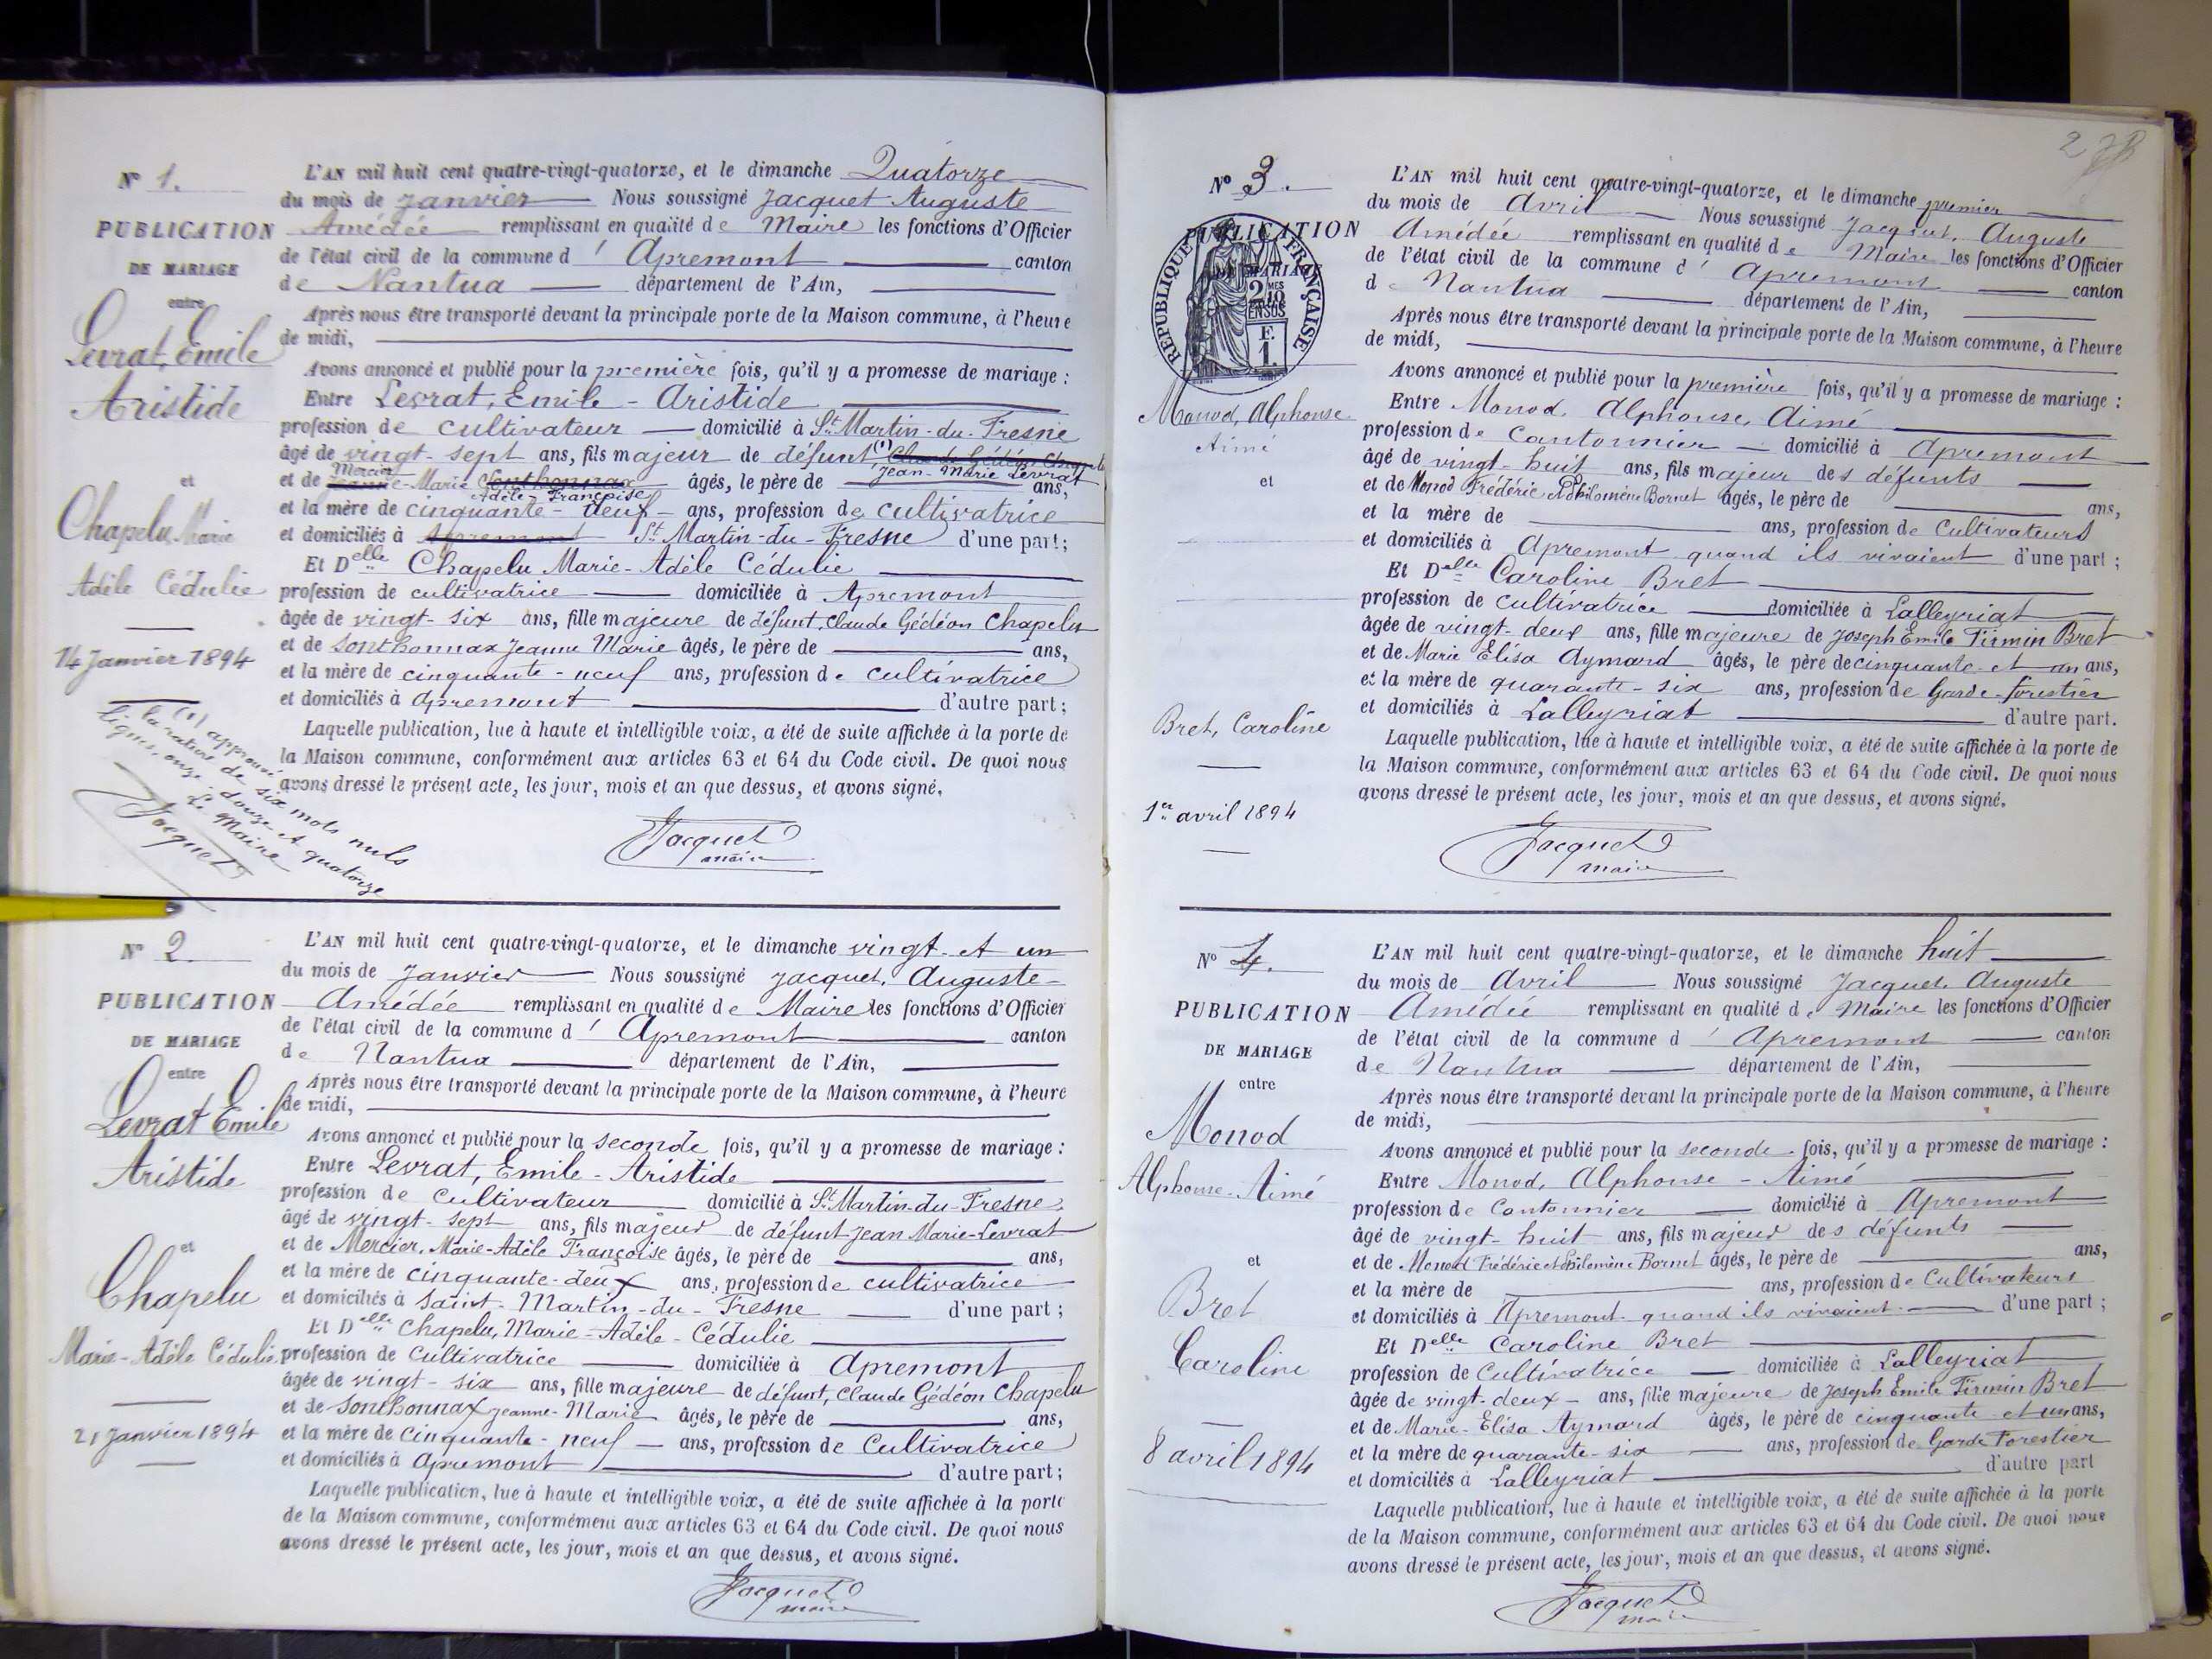 Nº 1.
PUBLICATION
DE MARIAGE
entre
Levrat, Emile
Aristide
et
Chapelu, Marie
Adèle Cédulie
14 Janvier 1894
(1) approuvé
la rature de six mots nuls
lignes onze douze et quatorze
Le Maire
Jacquet
L'AN mil huit cent quatre-vingt-quatorze, et le dimanche Quatorze
du mois de Janvier Nous soussigné Jacquet Auguste
Amédée remplissant en qualité de Maire les fonctions d'Officier
de l'état civil de la commune d' Apremont canton
de Nantua département de l'Ain,
Après nous être transporté devant la principale porte de la Maison commune, à l'heure
de midi,
Avons annoncé et publié pour la première fois, qu'il y a promesse de mariage :
Entre Levrat, Emile - Aristide
profession de cultivateur domicilié à St Martin-du-Fresne
âgé de vingt-sept ans, fils majeur de défunt (1) Claude Gédéon Chapelu
Jean-Marie Levrat
Mercier
et de Jeanne-Marie Sonthonnax âgés, le père de ans,
Adèle-Françoise
et la mère de cinquante-deux ans, profession de cultivatrice
et domiciliés à Apremont St Martin-du-Fresne d'une part;
Et Delle Chapelu Marie-Adèle Cédulie
profession de cultivatrice domiciliée à Apremont
âgée de vingt-six ans, fille majeure de défunt, Claude Gédéon Chapelu
et de Sonthonnax Jeanne Marie âgés, le père de ans,
et la mère de cinquante-neuf ans, profession de cultivatrice
et domiciliés à Apremont d'autre part;
Laquelle publication, lue à haute et intelligible voix, a été de suite affichée à la porte de
la Maison commune, conformément aux articles 63 et 64 du Code civil. De quoi nous
avons dressé le présent acte, les jour, mois et an que dessus, et avons signé.
Jacquet
maire
Nº 2
PUBLICATION
DE MARIAGE
entre
Levrat Emile
Aristide
et
Chapelu
Marie-Adèle Cédulie
21 Janvier 1894
L'AN mil huit cent quatre-vingt-quatorze, et le dimanche vingt-et un
du mois de Janvier Nous soussigné Jacquet, Auguste-
Amédée remplissant en qualité de Maire les fonctions d'Officier
de l'état civil de la commune d' Apremont canton
de Nantua département de l'Ain,
Après nous être transporté devant la principale porte de la Maison commune, à l'heure
de midi,
Avons annoncé et publié pour la seconde fois, qu'il y a promesse de mariage :
Entre Levrat, Emile-Aristide
profession de cultivateur domicilié à St Martin-du-Fresne
âgé de vingt-sept ans, fils majeur de défunt Jean Marie-Levrat
et de Mercier, Marie-Adèle Françoise âgés, le père de ans,
et la mère de cinquante-deux ans, profession de cultivatrice
et domiciliés à Saint-Martin-du-Fresne d'une part ;
Et Delle Chapelu, Marie-Adèle-Cédulie
profession de Cultivatrice domiciliée à Apremont
âgée de vingt-six ans, fille majeure de défunt, Claude Gédéon Chapelu
et de Sonthonnax Jeanne-Marie âgés, le père de ans,
et la mère de cinquante-neuf ans, profession de Cultivatrice
et domiciliés à Apremont d'autre part ;
Laquelle publication, lue à haute et intelligible voix, a été de suite affichée à la porte
de la Maison commune, conformément aux articles 63 et 64 du Code civil. De quoi nous
avons dressé le présent acte, les jour, mois et an que dessus, et avons signé.
Jacquet
maire
Nº 3.
PUBLICATION
DE MARIAGE
RÉPUBLIQUE FRANÇAISE
2 MES
10
EN SUS
F.
1.
Monod, Alphonse
Aimé
et
Bret, Caroline
1er avril 1894
L'AN mil huit cent quatre-vingt-quatorze, et le dimanche premier
du mois de Avril Nous soussigné Jacquet, Auguste
Amédée remplissant en qualité de Maire les fonctions d'Officier
de l'état civil de la commune d' Apremont canton
de Nantua département de l'Ain,
Après nous être transporté devant la principale porte de la Maison commune, à l'heure
de midi,
Avons annoncé et publié pour la première fois, qu'il y a promesse de mariage :
Entre Monod, Alphonse, Aimé
profession de Cantonnier domicilié à Apremont
âgé de vingt-huit ans, fils majeur des défunts
et de Monod Frédéric et Philomène Bornet âgés, le père de ans,
et la mère de ans, profession de Cultivateurs
et domiciliés à Apremont quand ils vivaient d'une part ;
Et Delle Caroline Bret
profession de cultivatrice domiciliée à Lalleyriat
âgée de vingt-deux ans, fille majeure de Joseph Emile Firmin Bret
et de Marie Elisa Aymard âgés, le père de cinquante-et un ans,
et la mère de quarante-six ans, profession de Garde-forestier
et domiciliés à Lalleyriat d'autre part.
Laquelle publication, lue à haute et intelligible voix, a été de suite affichée à la porte de
la Maison commune, conformément aux articles 63 et 64 du Code civil. De quoi nous
avons dressé le présent acte, les jour, mois et an que dessus, et avons signé.
Jacquet
maire
Nº 4.
PUBLICATION
DE MARIAGE
entre
Monod
Alphonse-Aimé
et
Bret
Caroline
8 avril 1894
L'AN mil huit cent quatre-vingt-quatorze, et le dimanche huit
du mois de Avril Nous soussigné Jacquet, Auguste
Amédée remplissant en qualité de Maire les fonctions d'Officier
de l'état civil de la commune d' Apremont canton
de Nantua département de l'Ain,
Après nous être transporté devant la principale porte de la Maison commune, à l'heure
de midi,
Avons annoncé et publié pour la seconde fois, qu'il y a promesse de mariage :
Entre Monod, Alphonse-Aimé
profession de Cantonnier domicilié à Apremont
âgé de vingt-huit ans, fils majeur des défunts
et de Monod Frédéric et Philomène Bornet âgés, le père de ans,
et la mère de ans, profession de Cultivateurs
et domiciliés à Apremont quand ils vivaient d'une part ;
Et Delle Caroline Bret
profession de Cultivatrice domiciliée à Lalleyriat
âgée de vingt-deux ans, fille majeure de Joseph Emile Firmin Bret
et de Marie-Elisa Aymard âgés, le père de cinquante et un ans,
et la mère de quarante-six ans, profession de Garde Forestier
et domiciliés à Lalleyriat d'autre part
Laquelle publication, lue à haute et intelligible voix, a été de suite affichée à la porte
de la Maison commune, conformément aux articles 63 et 64 du Code civil. De quoi nous
avons dressé le présent acte, les jour, mois et an que dessus, et avons signé.
Jacquet
maire